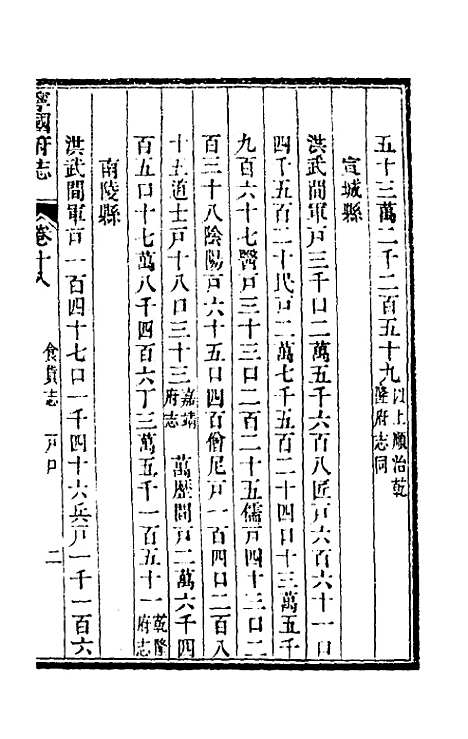 五十三萬二千二百五十九以上順治乾隆府志同
宣城縣
洪武間軍戸三千口二萬五千六百八匠戸六百六十一口
四千五百二十民戸二萬七千五百二十四口十三萬五千
九百六十七醫戸三十三口二百二十五儒戸四十三口二
百三十八陰陽戸六十五口四百僧尼戸一百四口二百八
十五道士戸十八口三十三嘉靖府志萬歷間戸二萬六千四
百五口十七萬八千四百六丁三萬五千一百五十一乾隆府志
南陵縣
洪武間軍戸一百四十七口一千四十六兵戸一千一百六
寧國府志
卷十八
食貨志 戸口
二